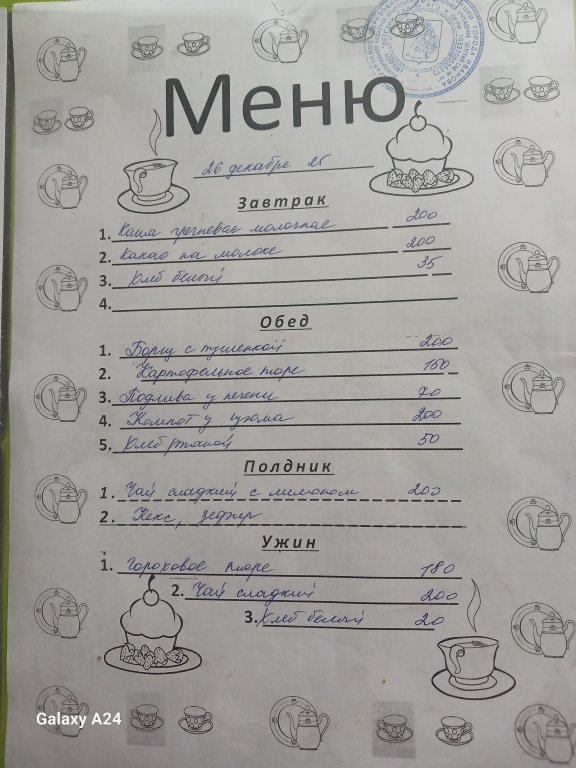 Меню
26 декабре 25
Завтрак
1. Каша гречневая молочная 200
2. Какао на молоке 200
3. Хлеб белый 35
4.
Обед
1. Борщ с тушенкой 200
2. Картофельное пюре 150
3. Подлива у печени 70
4. Компот у изюма 200
5. Хлеб ржаной 50
Полдник
1. Чай сладкий с лимоном 200
2. Кекс, зефир
Ужин
1. Гороховое пюре 180
2. Чай сладкий 200
3. Хлеб белый 20
Galaxy A24